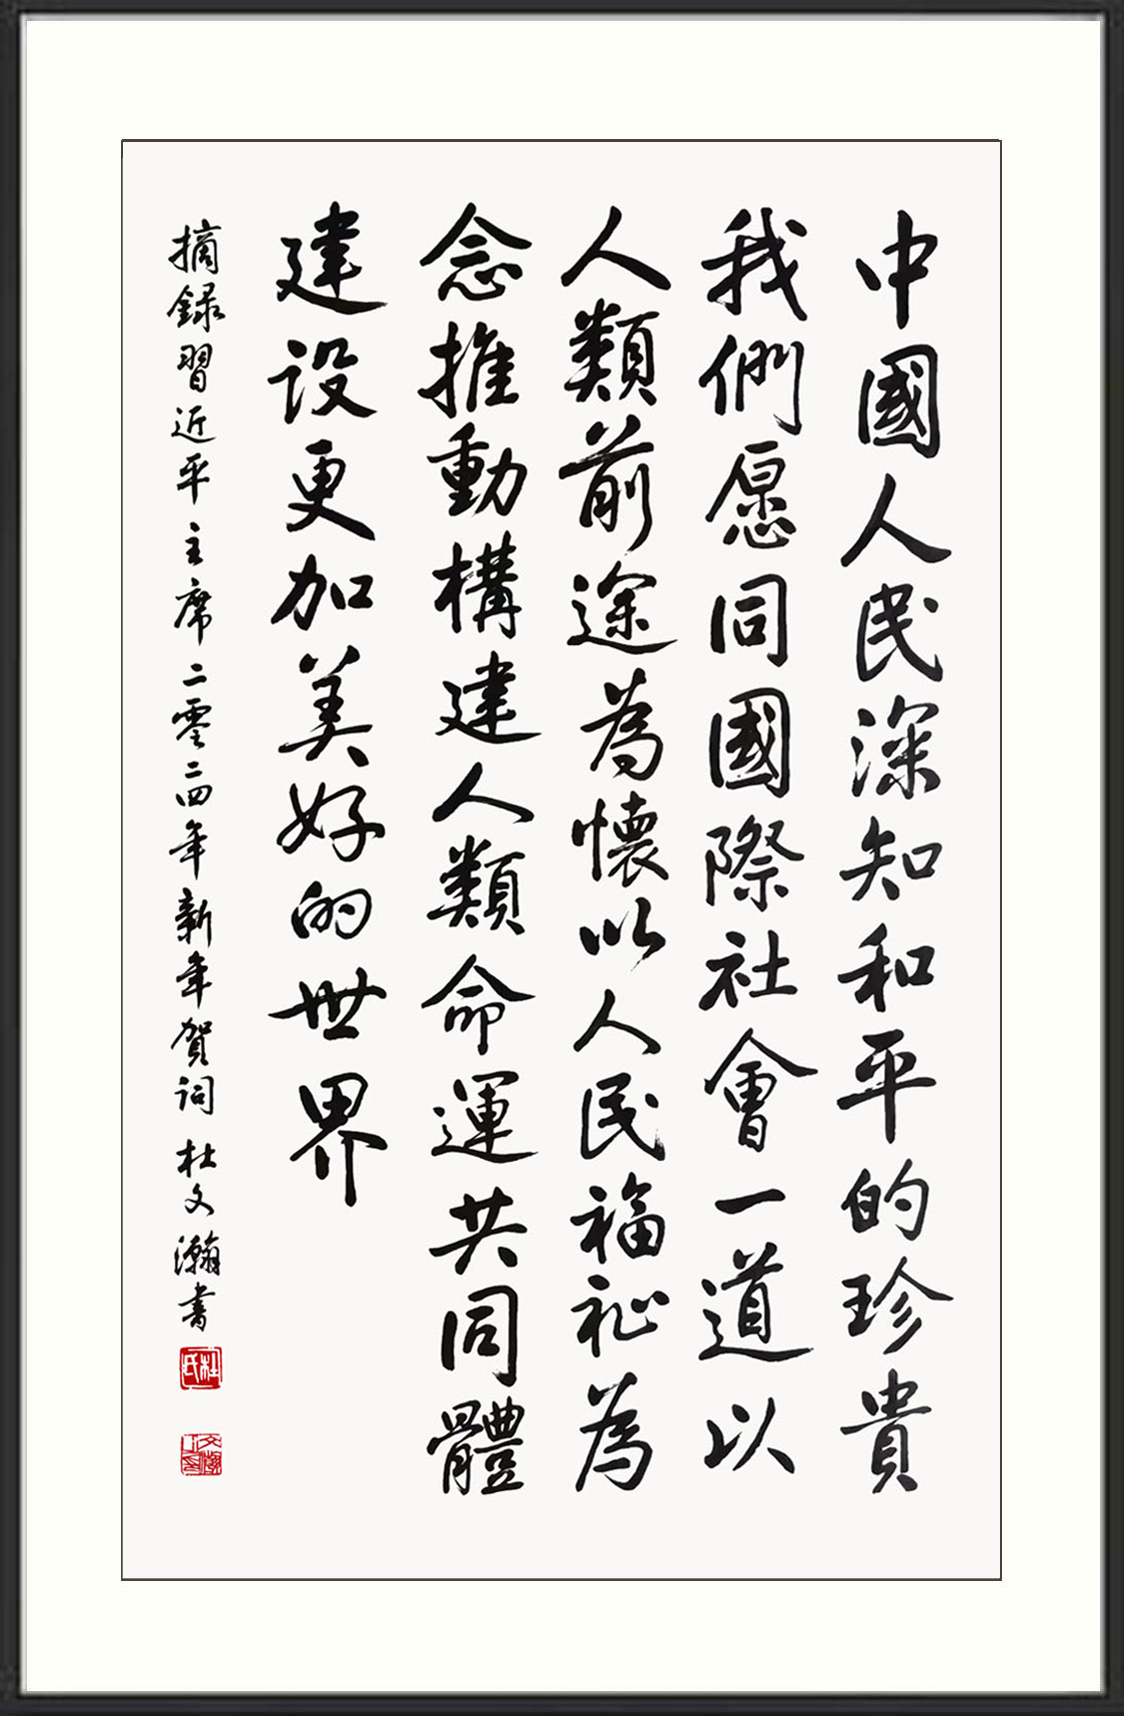 中國人民深知和平的珍貴
我們愿同國際社會一道以
人類前途為懷以人民福祉為
念推動構建人類命運共同體
建设更加美好的世界
摘録習近平主席二零二四年新年賀詞 杜文瀚書
杜氏
文瀚